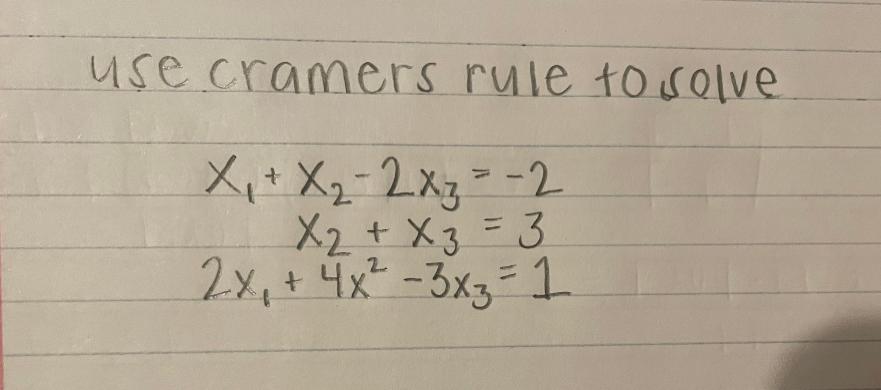 use cramers rule to solve
x₁ + x₂ - 2x₃ = -2
x₂ + x₃ = 3
2x₁ + 4x² - 3x₃ = 1